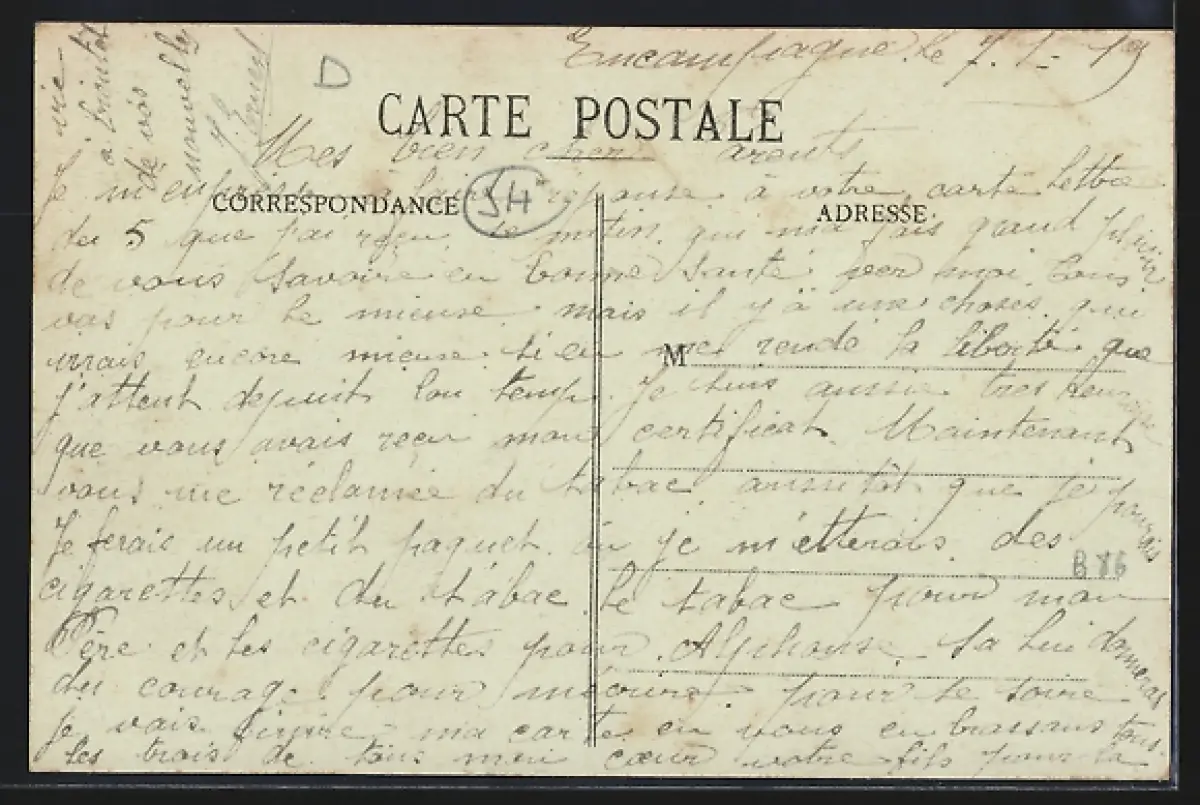 Encampagne le 7. 1 - 19
D
CARTE POSTALE
Mes bien chers parents
Je m'enpresse à faire réponse à votre carte lettre
CORRESPONDANCE
54
ADRESSE
du 5 que j'ai reçu le matin, qui m'a fais grand plaisir
de vous savoire en bonne santé. pour moi tous
vas pour le mieuse mais il y à une choses qui
irrais encore mieuse si en me rende la liberté que
M
j'attent depuit lon temp. Je suis aussie très heureuse
que vous avais reçu mon certificat. Maintenant
vous me réclamée du tabac aussitôt que je pourrais
Je ferais un petit paquet. où je m'etterais des
B 86
cigarettes et du tabac. Le tabac pour mon
Père et les cigarettes pour Alphonse. Sa lui donneras
du courage pour mécrire. pour le soire
je vais finire ma carte en vous en brassans tous
les trois de tous mon cœur votre fils pour la
vie -
à bientôt
de vos
nouvelles